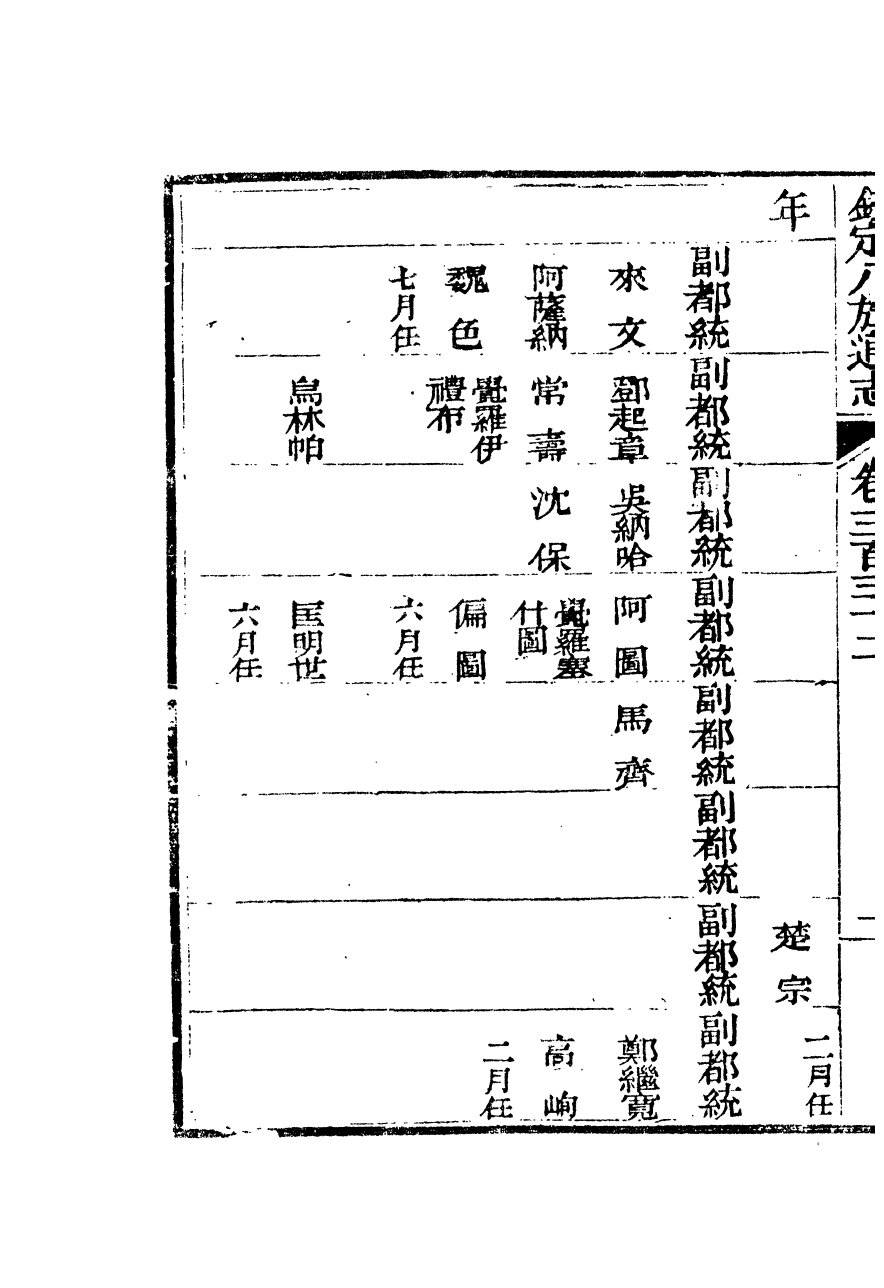 欽定八旗通志 卷三百三十二
年 楚宗
二月任
副都統 副都統 副都統 副都統 副都統 副都統 副都統 副都統
來文 鄧起章 吳納哈 阿圖 馬齊 鄭繼寬
阿薩納 常壽 沈保 覺羅塞什圖 高峋
二月任
魏色 覺羅伊禮布 偏圖
七月任 六月任
烏林帕 匡明世
六月任